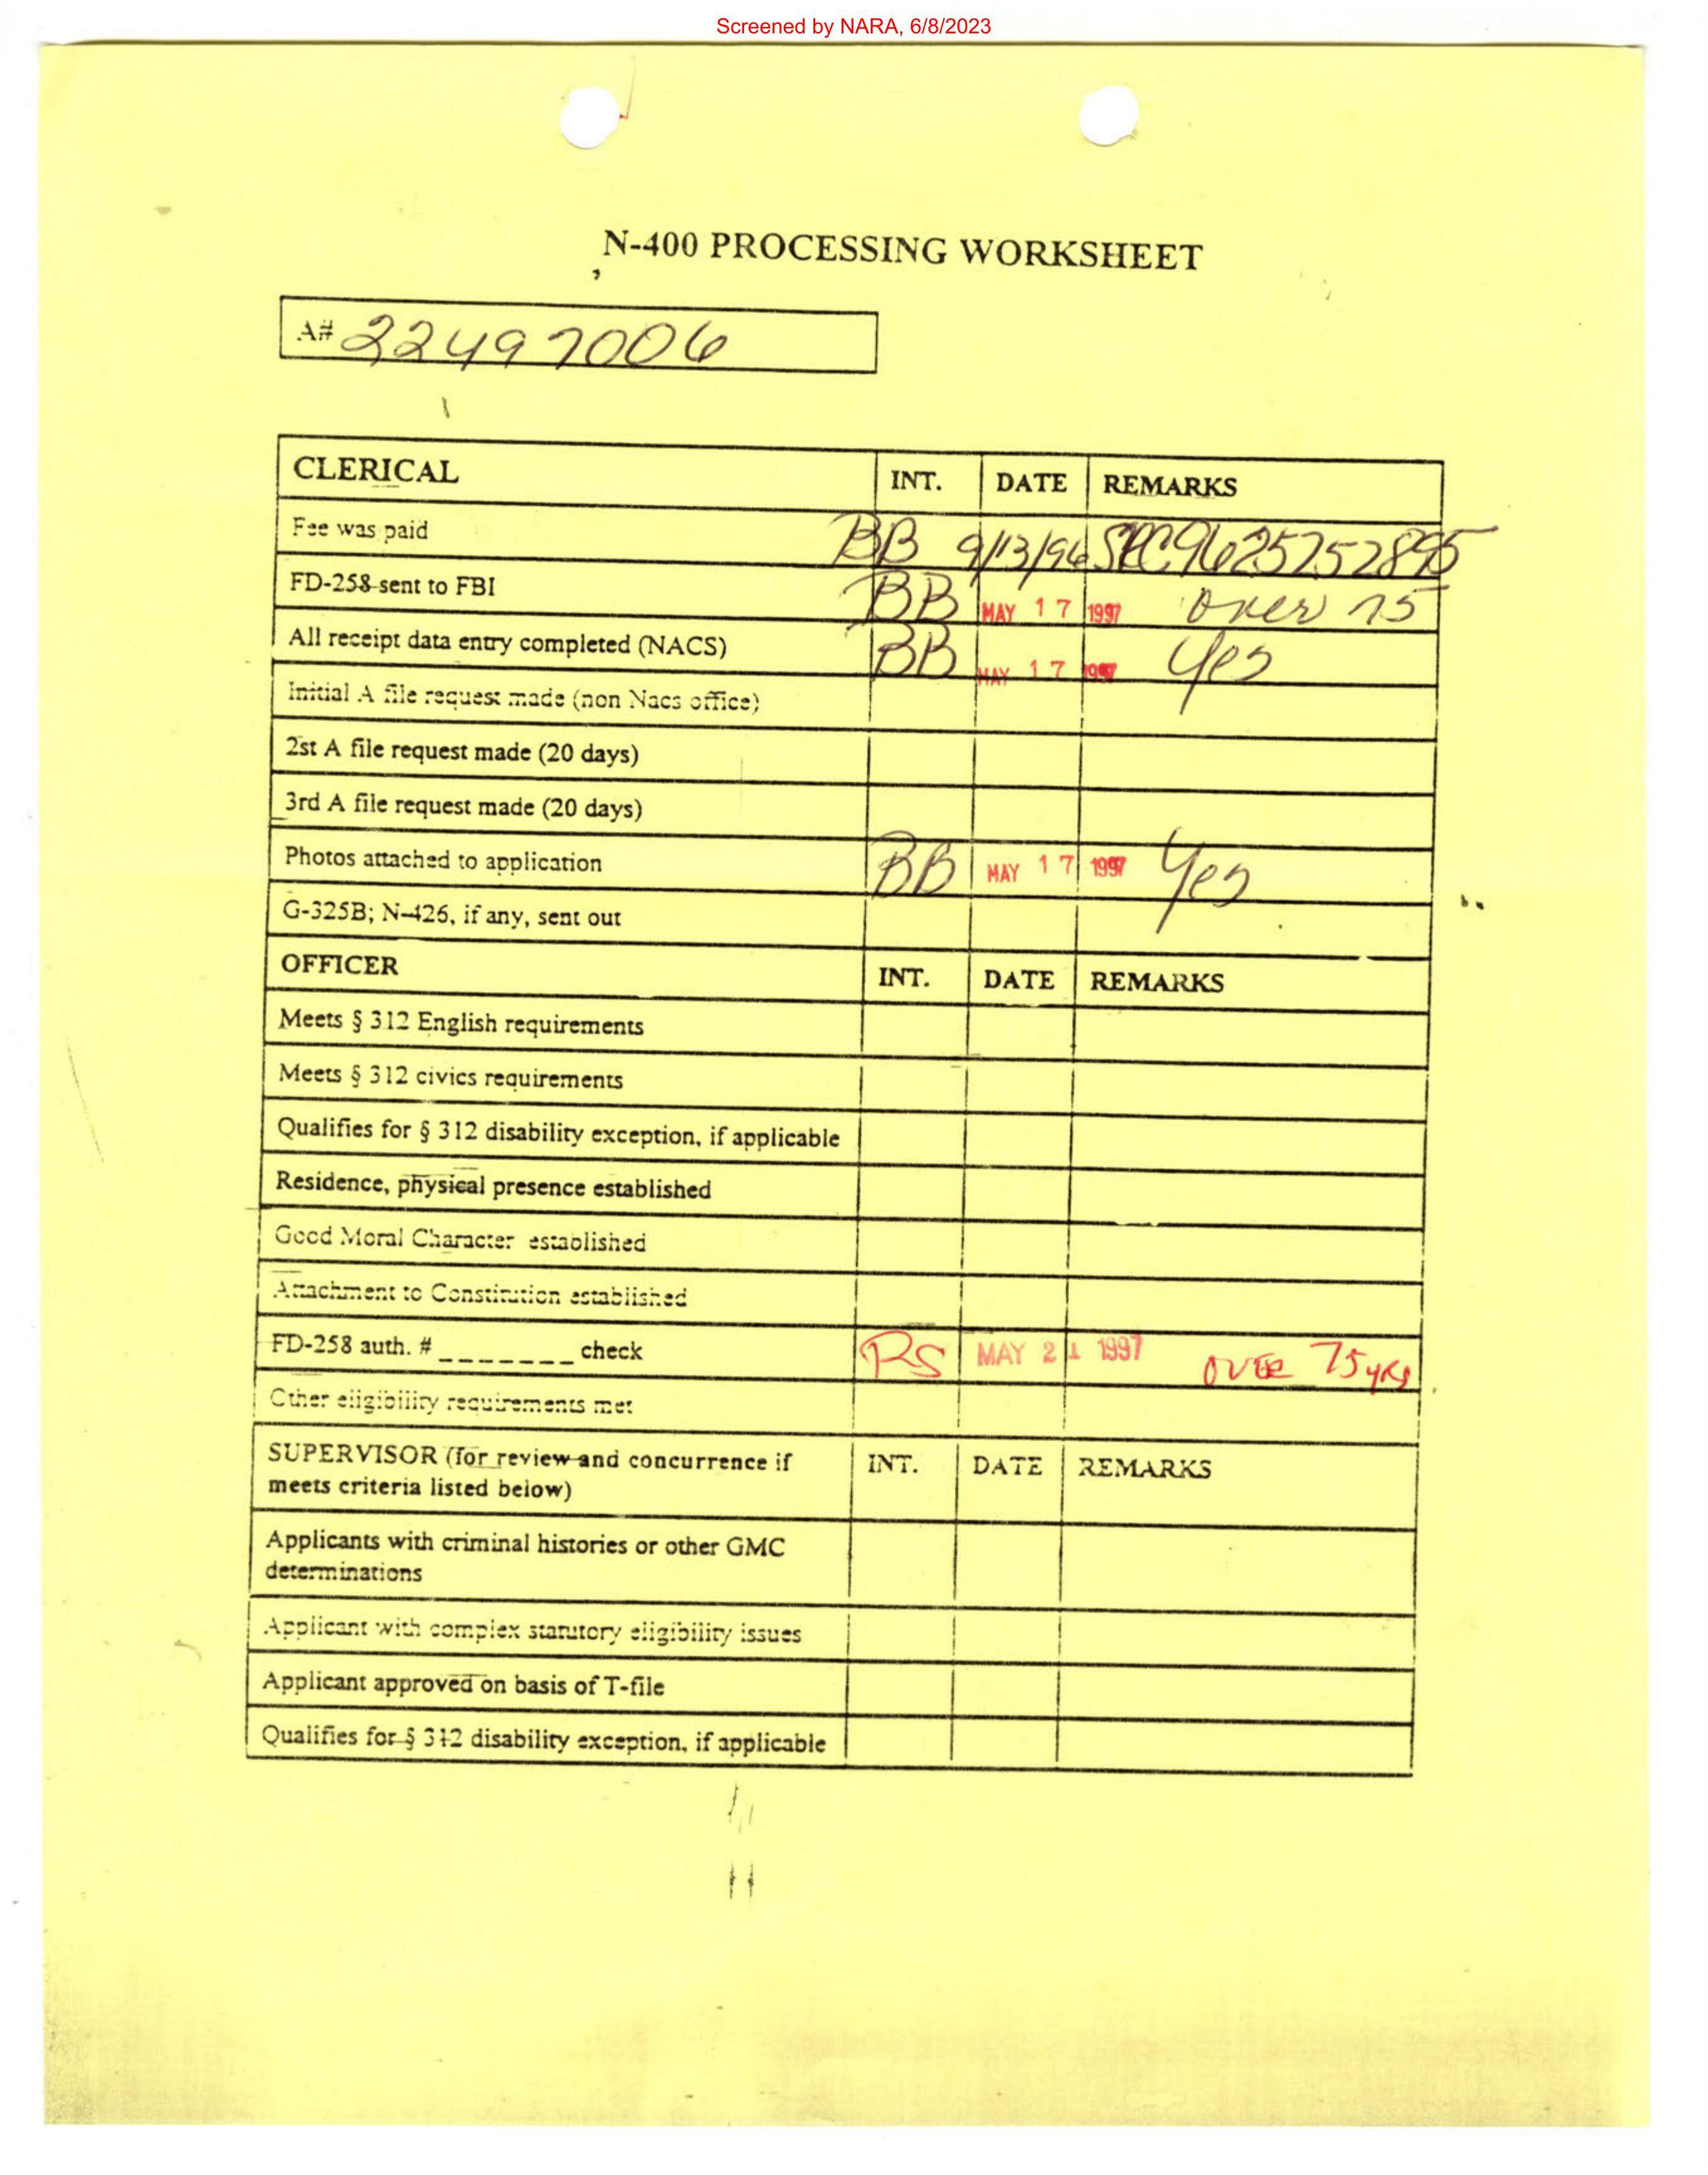 Screened by NARA, 6/8/2023
N-400 PROCESSING WORKSHEET
A# 22497006
CLERICAL INT. DATE REMARKS
Fee was paid BB 9/13/96 SRC9625752895
FD-258 sent to FBI BB MAY 17 1997 over 75
All receipt data entry completed (NACS) BB MAY 17 1997 Yes
Initial A file request made (non Nacs office)
2st A file request made (20 days)
3rd A file request made (20 days)
Photos attached to application BB MAY 17 1997 Yes
G-325B; N-426, if any, sent out
OFFICER INT. DATE REMARKS
Meets § 312 English requirements
Meets § 312 civics requirements
Qualifies for § 312 disability exception, if applicable
Residence, physical presence established
Good Moral Character established
Attachment to Constitution established
FD-258 auth. # _______ check RS MAY 21 1997 OVER 75 yrs
Other eligibility requirements met
SUPERVISOR (for review and concurrence if INT. DATE REMARKS
meets criteria listed below)
Applicants with criminal histories or other GMC
determinations
Applicant with complex statutory eligibility issues
Applicant approved on basis of T-file
Qualifies for § 312 disability exception, if applicable